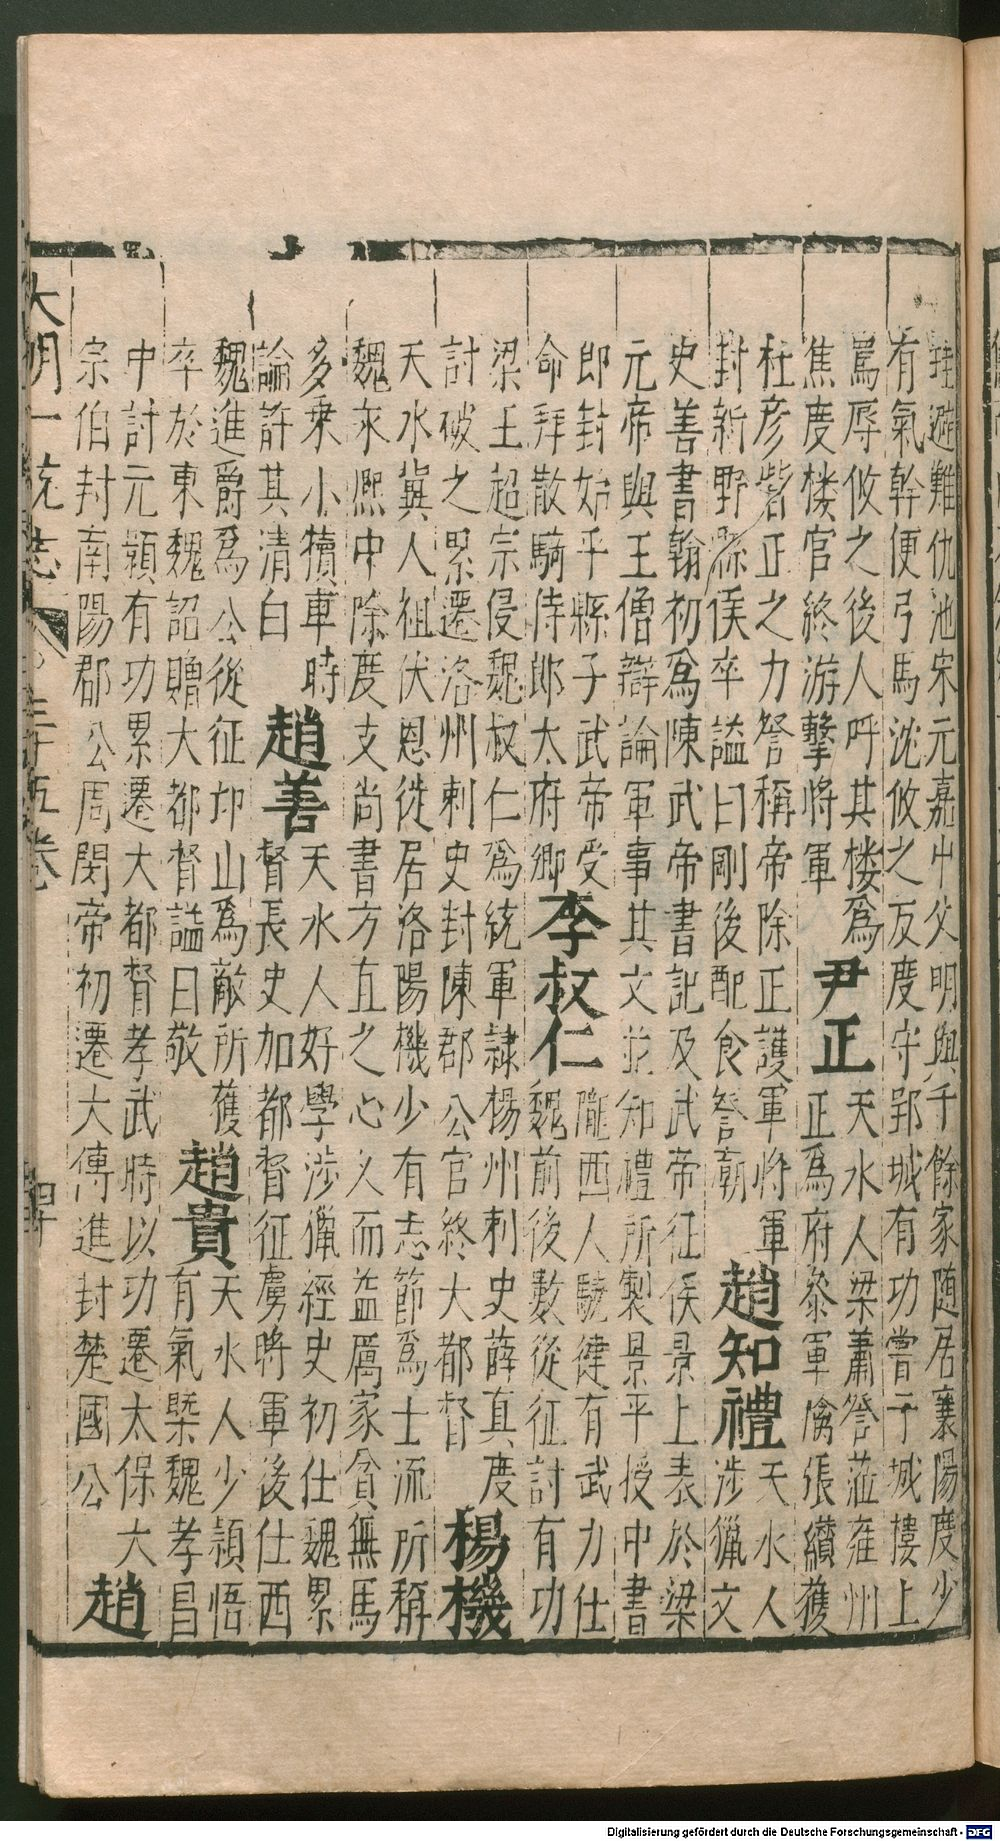 難避難仇池宋元嘉中父明與千餘家随居襄陽度少
有氣幹便弓馬沈攸之反度守郢城有功嘗于城樓上
罵辱攸之後人呼其楼爲
焦度楼官終游擊將軍
尹正
天水人梁蕭詧蒞雍州
正爲府叅軍擒張纘獲
杜彥皆正之力詧稱帝除正護軍將軍
封新野縣侯卒謚曰剛後配食詧朝
趙知禮
天水人
涉獵文
史善書翰初爲陳武帝書記及武帝征侯景上表於梁
元帝與王僧辯論軍事其文並知禮所製景平授中書
郎封始平縣子武帝受
命拜散騎侍郎太府卿
李叔仁
隴西人驍健有武力仕
魏前後數從征討有功
梁王超宗侵魏叔仁爲統軍隸楊州刺史薛真度
討破之累遷洛州刺史封陳郡公官終大都督
楊機
天水冀人祖伏恩徙居洛陽機少有志節爲士流所稱
魏永熈中除度支尚書方直之心乆而益厲家貧無馬
多乗小犢車時
論許其清白
趙善
天水人好學涉獵經史初仕魏累
督長史加都督征虜將軍後仕西
魏進爵爲公從征邙山爲敵所獲
卒於東魏詔贈大都督謚曰敬
趙貴
天水人少頴悟
有氣槩魏孝昌
中討元顥有功累遷大都督孝武時以功遷太保大
宗伯封南陽郡公周閔帝初遷大傳進封楚國公
趙
大明一統志 三十五卷 四十
Digitalisierung gefördert durch die Deutsche Forschungsgemeinschaft - DFG